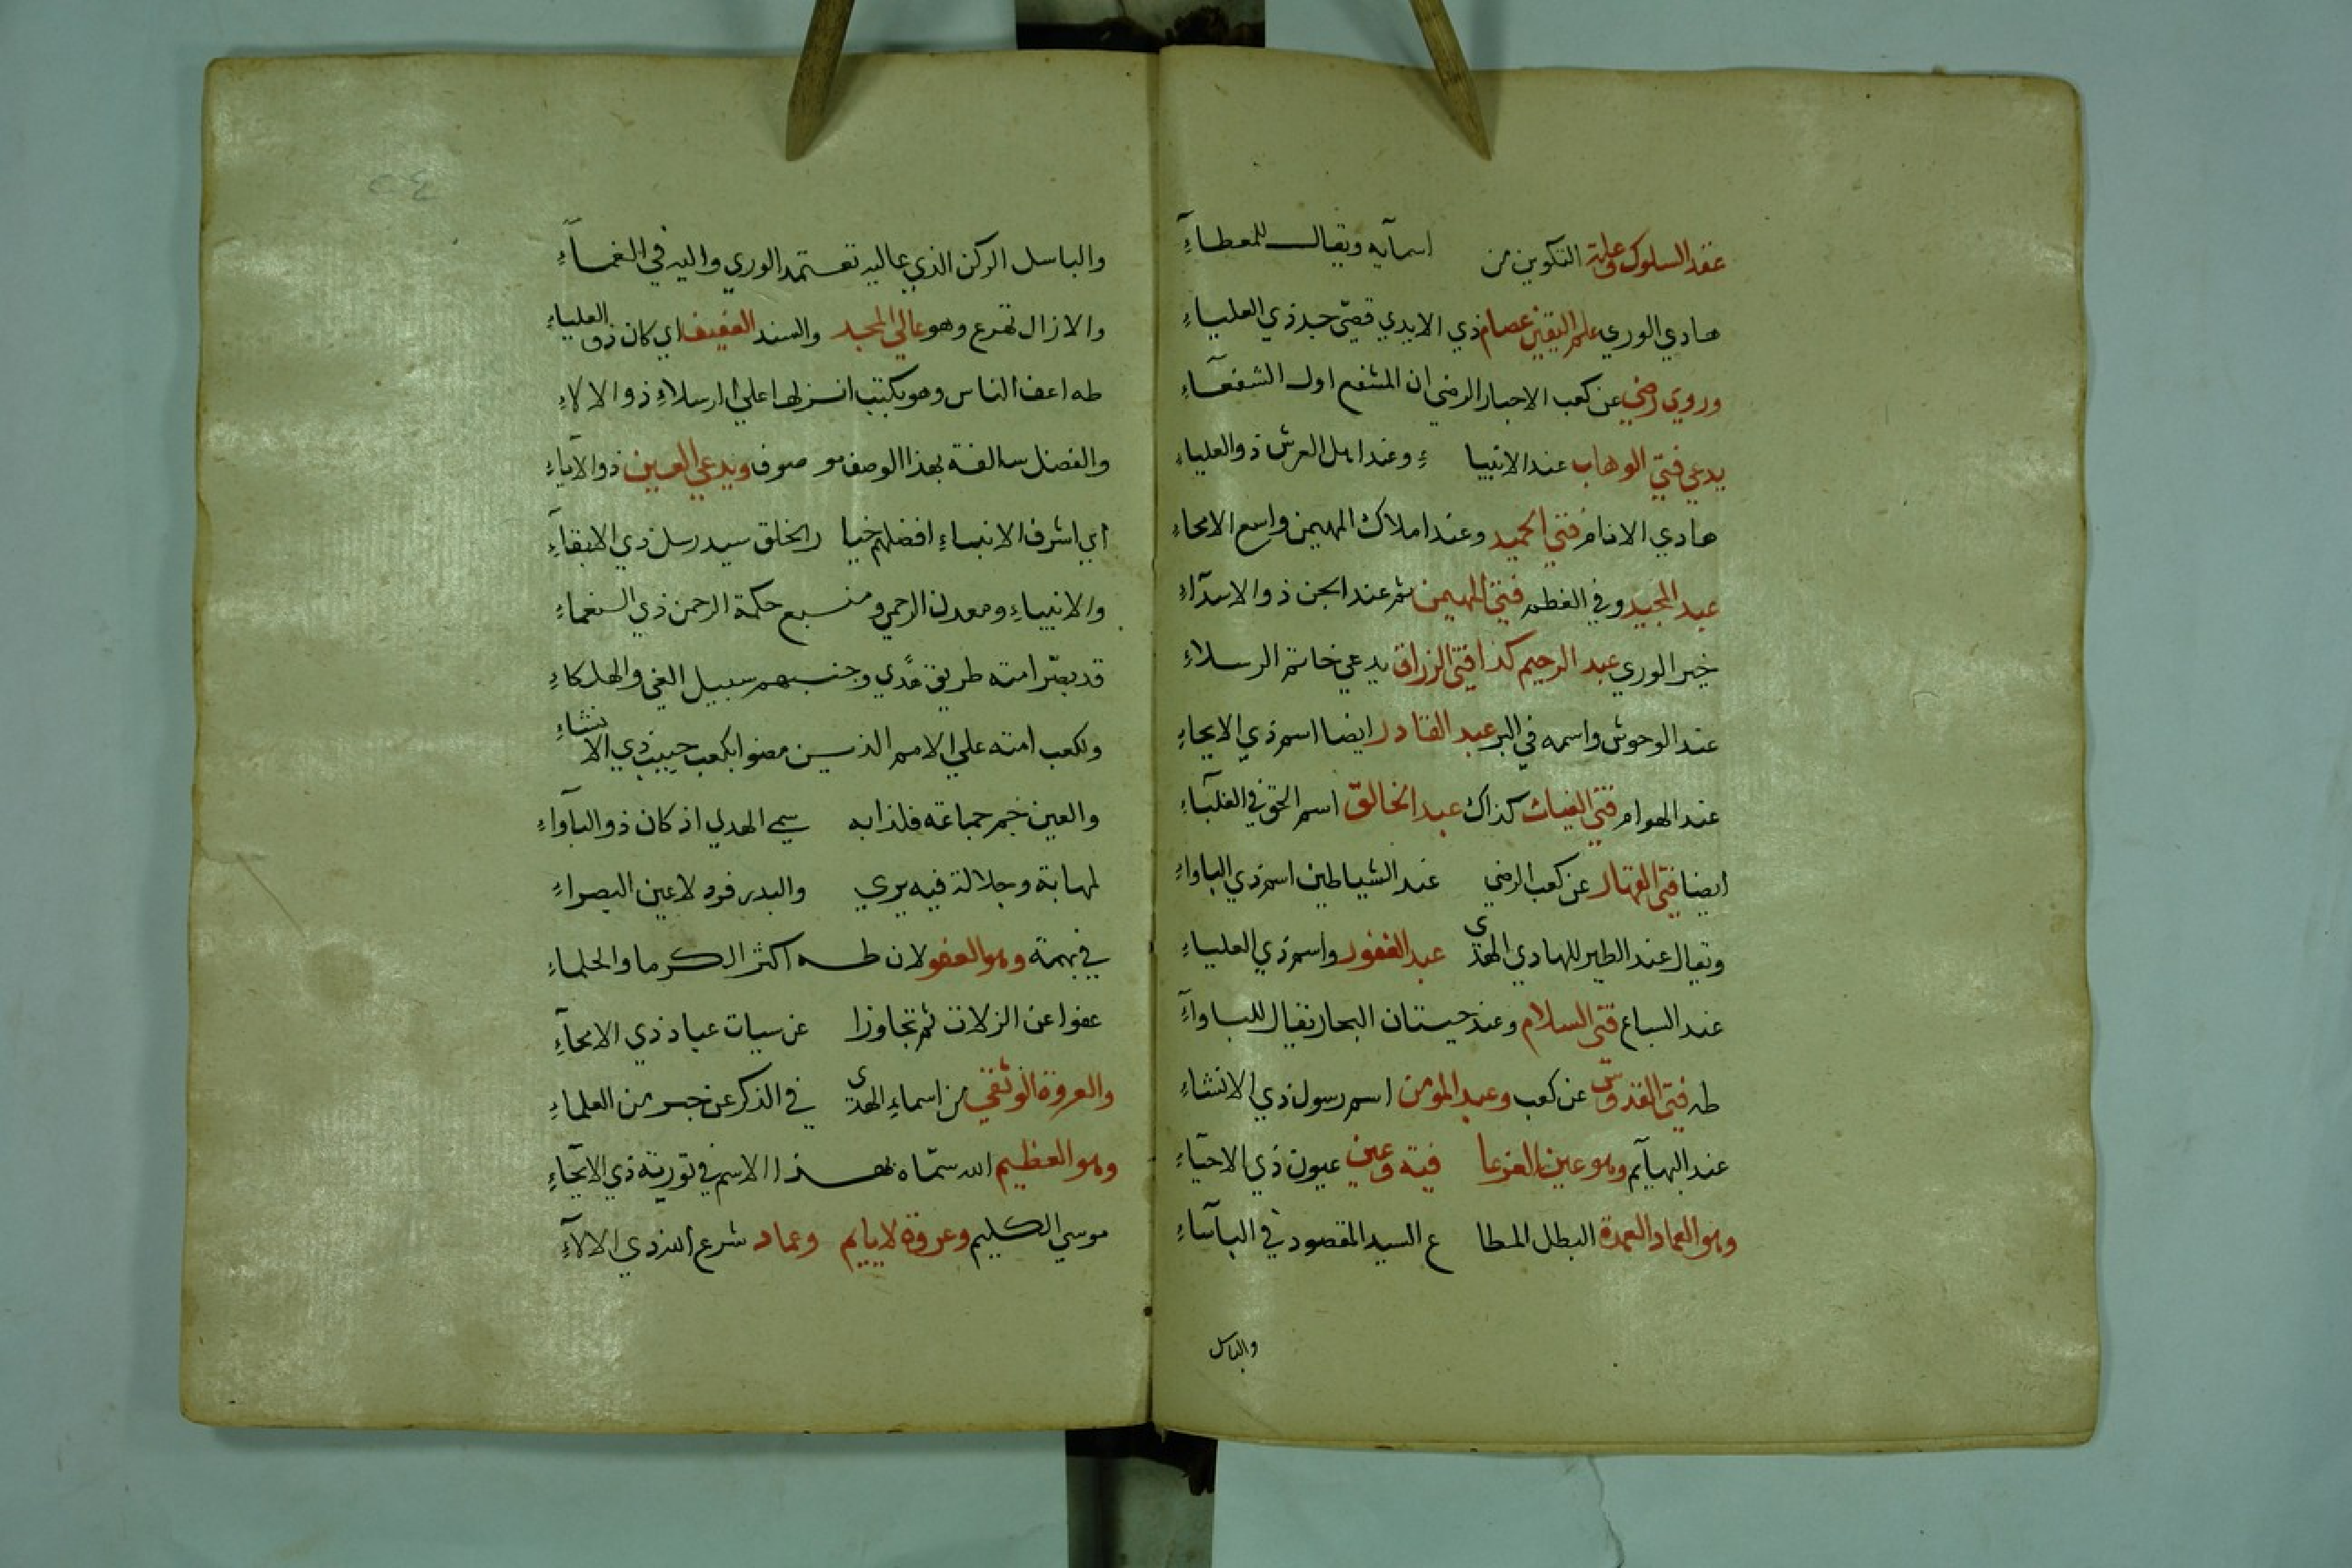 عقد السلوك وعلة التكوين من اسمآيه ويقال للمعطآءِ
هادي الوري علم اليقين عصام ذي الايدي قصيّ جد ذي العلياءِ
وروي رضي عن كعب الاحبار الرضي ان المشفع اول الشفعآءِ
يدعي فتي الوهاب عند الانبيا ءِ وعند اهل العرش ذو العلياءِ
هادي الانام فتي الحميد وعند املاك المهيمن واسع الامحاءِ
عبد المجيد وفي الغطم فتي المهيمن ثم عند الجن ذو الاسدآءِ
خير الوري عبد الرحيم كذا فتي الرزاق يدعي خاتم الرسلاءِ
عند الوحوش واسمه في البر عبد القادر ايضا اسم ذي الايحاءِ
عند الهوام فتي الغياث كذاك عبد الخالق اسم الحق في الغلبآءِ
ايضا فتي القهار عن كعب الرضي عند الشياطين اسم ذي الباواءِ
ويقال عند الطير للهادي الهدى عبد الغفور واسم ذي العلياءِ
عند السباع فتي السلام وعند حيتان البحار يقال للباوآءِ
طه فتي القدوس عن كعب وعبد المومن اسم رسول ذي الانشاءِ
عند البهآيم وهو عين العز عا فيته وعين عيون ذي الاحيآءِ
وهو العماد العمدة البطل المطا ع السيد المقصود في الباسآءِ
والباسل
والباسل الركن الذي عاليه تعتمد الوري واليه في الغمآءِ
والازال تهرع وهو عالي المجد والسند العفيف اي كان ذو العلياءِ
طه اعف الناس وهو بكتب انزلها علي ارسلاءِ ذو الالاءِ
والفضل سالفة بهذا الوصف مو صوف ويدعي العين ذو الاياءِ
اي اشرف الانبياءِ افضلهم خيا ر الخلق سيد رسل ذي الابقآءِ
والانبياءِ ومعدن الرحمي و منبع حكمة الرحمن ذي النعماءِ
قد بصّر امته طريق هدًي وجنبهم سبيل الغي والهلكاءِ
وكعب امته علي الامم الذين مضوا بكعب حبيب ذي الانشاءِ
والعين خير جماعته فلذا به سمي الهدي اذ كان ذو الباوآءِ
لمهابة وجلالة فيه يري والبدر فرد لاعين البصراءِ
في بهمة وهو العفو لان طه اكثر الكرما والحلماءِ
عفوا عن الزلات ثم تجاوزا عن سيات عباد ذي الامحآءِ
والعروة الوثقي من اسماءِ الهدى في الذكر عن حبر من العلماءِ
وهو العظيم الله سمّاه بهذا الاسم في تورية ذي الايحآءِ
موسي الكليم وعروة لاياءيم وعماد شرع الله ذي الالآءِ